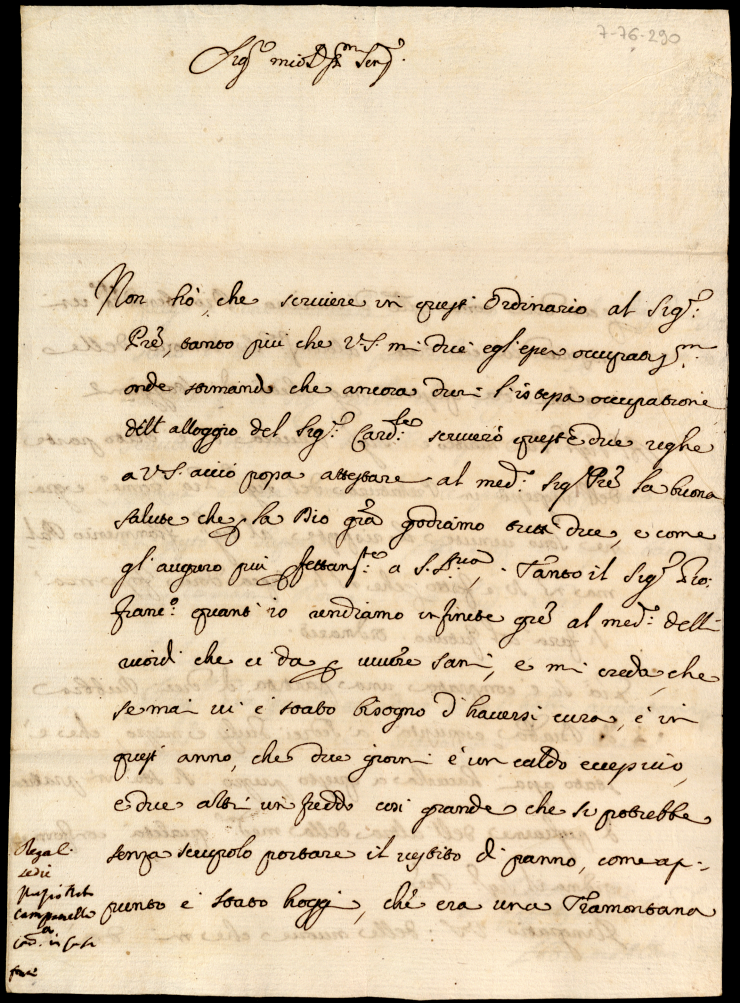 7-76-290
Sig.r mio Sig.r
Non hò, che scrivere in quest'Ordinario al Sig.r
Prē, tanto più che V.S. mi dice egl'esser occupatiss.mo
onde stimando che ancora duri l'istessa occupatione
dell'alloggio del Sig.r Card.le scriverò queste due righe
a V.S. acciò possa attestare al med.o Sig.r Prē la buona
salute che p la Dio grã godiamo tutti due, e come
gl'auguro più perfettam.te a S.S.ria. Tanto il Sig.r Gio:
Franc.o quant'io rendiamo infinite grē al med.o delli
ricordi che ci dà p vivere sani, e mi creda, che
se mai vi è stato bisogno d'haversi cura, è in
quest'anno, che due giorni è un caldo eccessivo,
e due altri un freddo così grande che si potrebbe
senza scrupolo portare il vestito di panno, come ap-
punto è stato hoggi, chè era una Tramontana
Regal.
sedie
Campanello
a